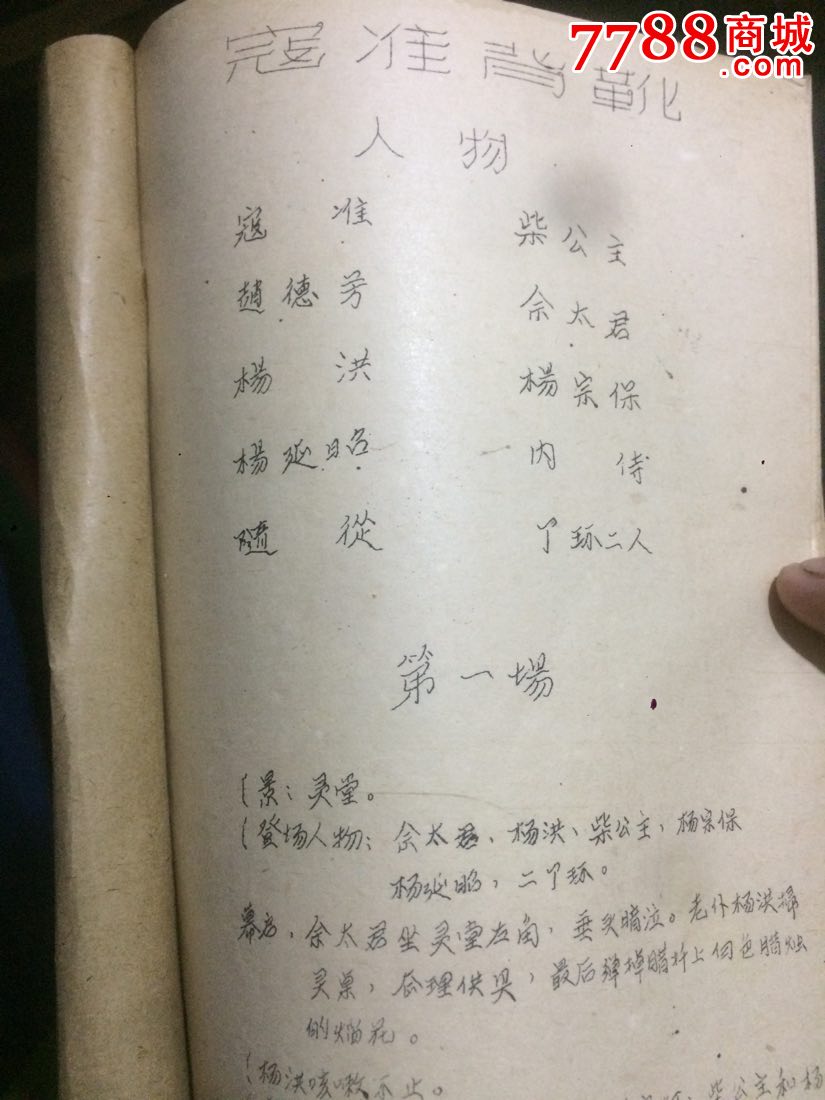 7788商城
寇准背靴
人物
寇准 柴公主
趙德芳 佘太君
楊洪 楊宗保
楊延昭 内侍
隨從 丫环二人
第一場
(景：灵堂。
(登场人物：佘太君、杨洪、柴公主，杨宗保
杨延昭，二丫环。
幕启，佘太君坐灵堂左角，垂头暗泣。老仆杨洪掃
灵桌，整理供具，最后弹掉腊扦上白色腊烛
的烟花。
(杨洪咳嗽不止。
柴公主和杨